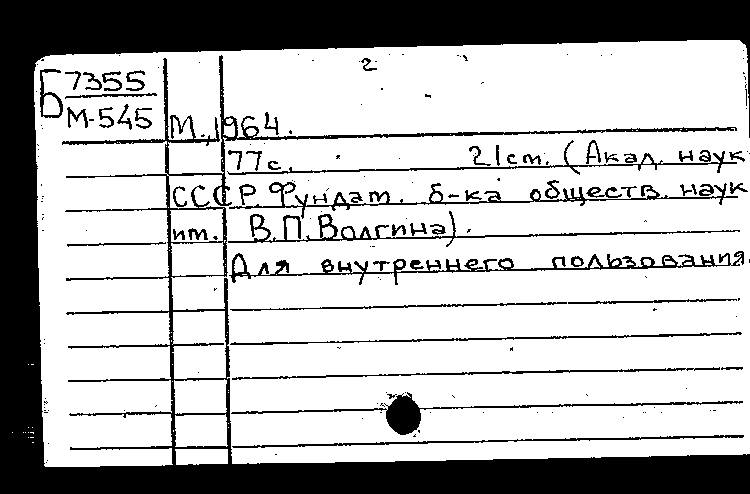 2
Б 7355
М-545
М., 1964.
77с. 21cm. (Акад. наук
СССР. Фундам. б-ка обществ. наук
им. В.П.Волгина).
Для внутреннего пользования.